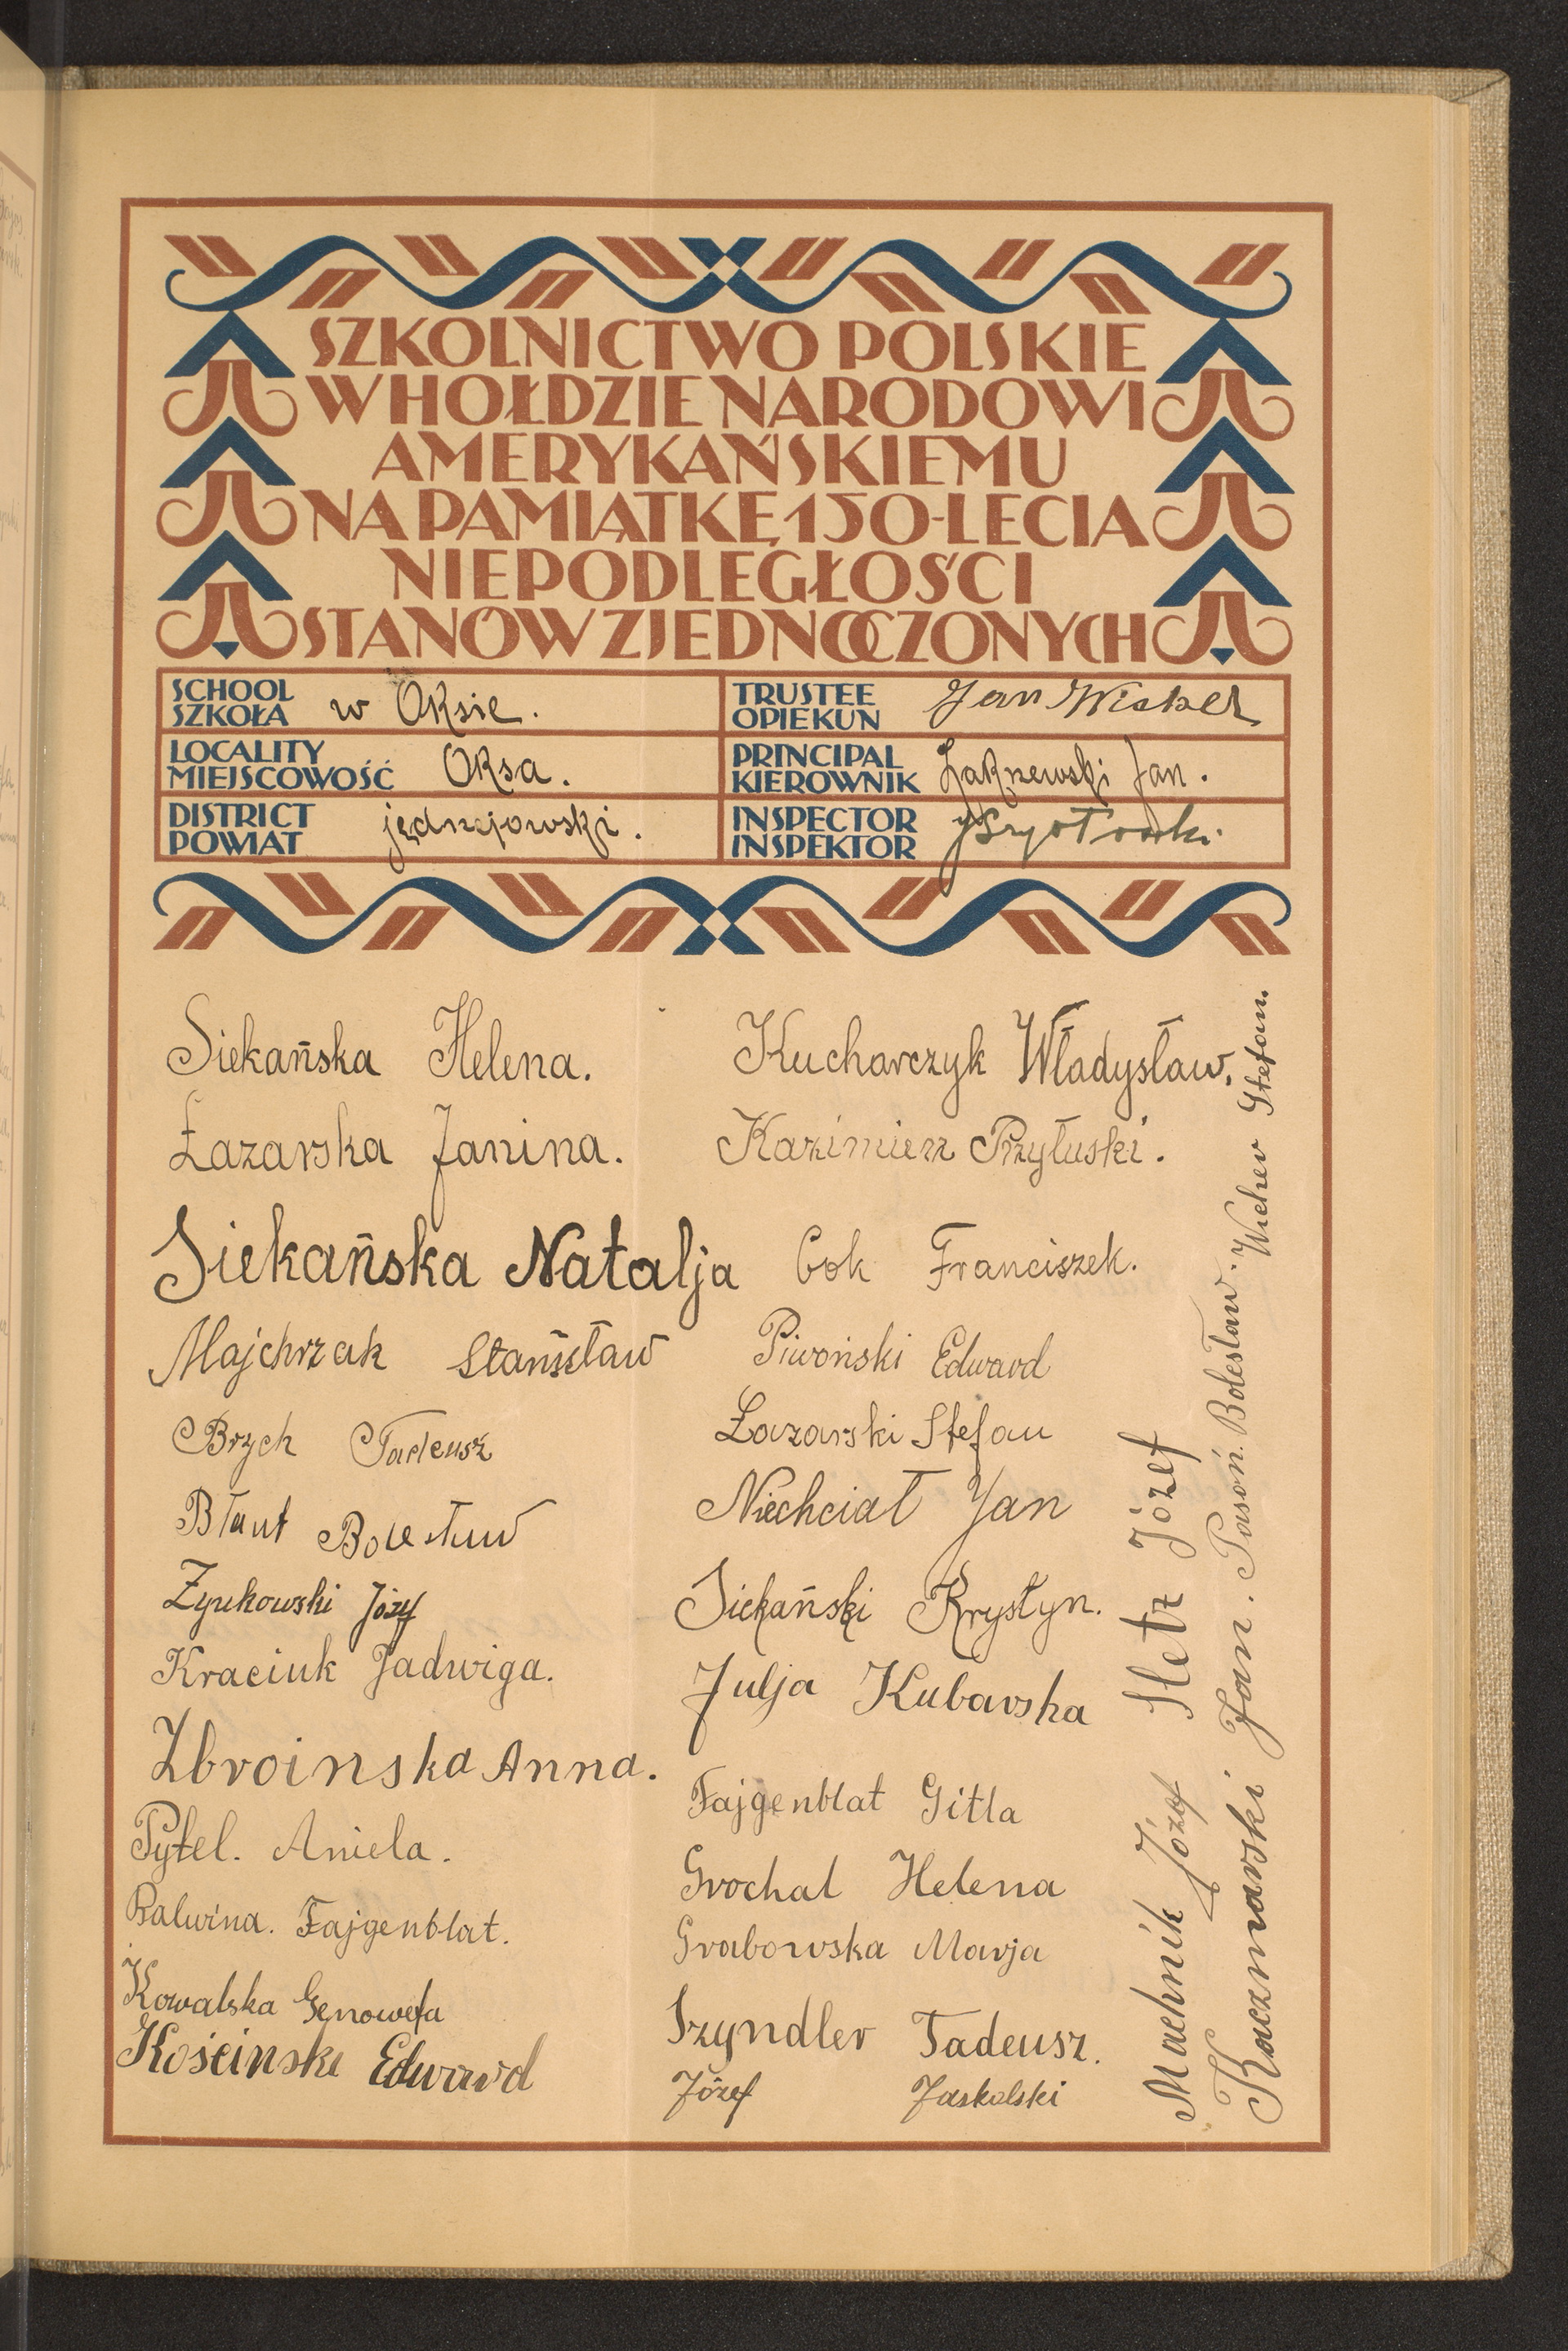 SZKOLNICTWO POLSKIE
W HOŁDZIE NARODOWI
AMERYKAŃSKIEMU
NA PAMIĄTKĘ 150-LECIA
NIEPODLEGŁOŚCI
STANÓW ZJEDNOCZONYCH
SCHOOL
SZKOŁA w Oksie.
TRUSTEE
OPIEKUN Jan
LOCALITY
MIEJSCOWOŚĆ Oksa.
PRINCIPAL
KIEROWNIK Żakrzewski Jan.
DISTRICT
POWIAT jędrzejowski.
INSPECTOR
INSPEKTOR
Siekańska Helena.
Łazarska Janina.
Siekańska Natalja
Majchrzak Stanisław
Brzych Tadeusz
Błaut Bolesław
Żyukowski Józef
Kraciuk Jadwiga.
Zbroinska Anna.
Pytel. Aniela.
Balwina. Fajgenblat.
Kowalska Genowefa
Kościnski Edward
Kucharczyk Władysław.
Kazimierz Przyłuski.
Cok Franciszek.
Piwoński Edward
Łazarski Stefan
Niechciał Jan
Siekański Krystyn.
Julja Kubarska
Fajgenblat Gitla
Grochal Helena
Grabowska Marja
Szyndler Tadeusz.
Józef Jaskalski
Machnik Józef Sletz Józef
Kaczmarski Jan. Pasoń. Bolesław. Wicher Stefan.